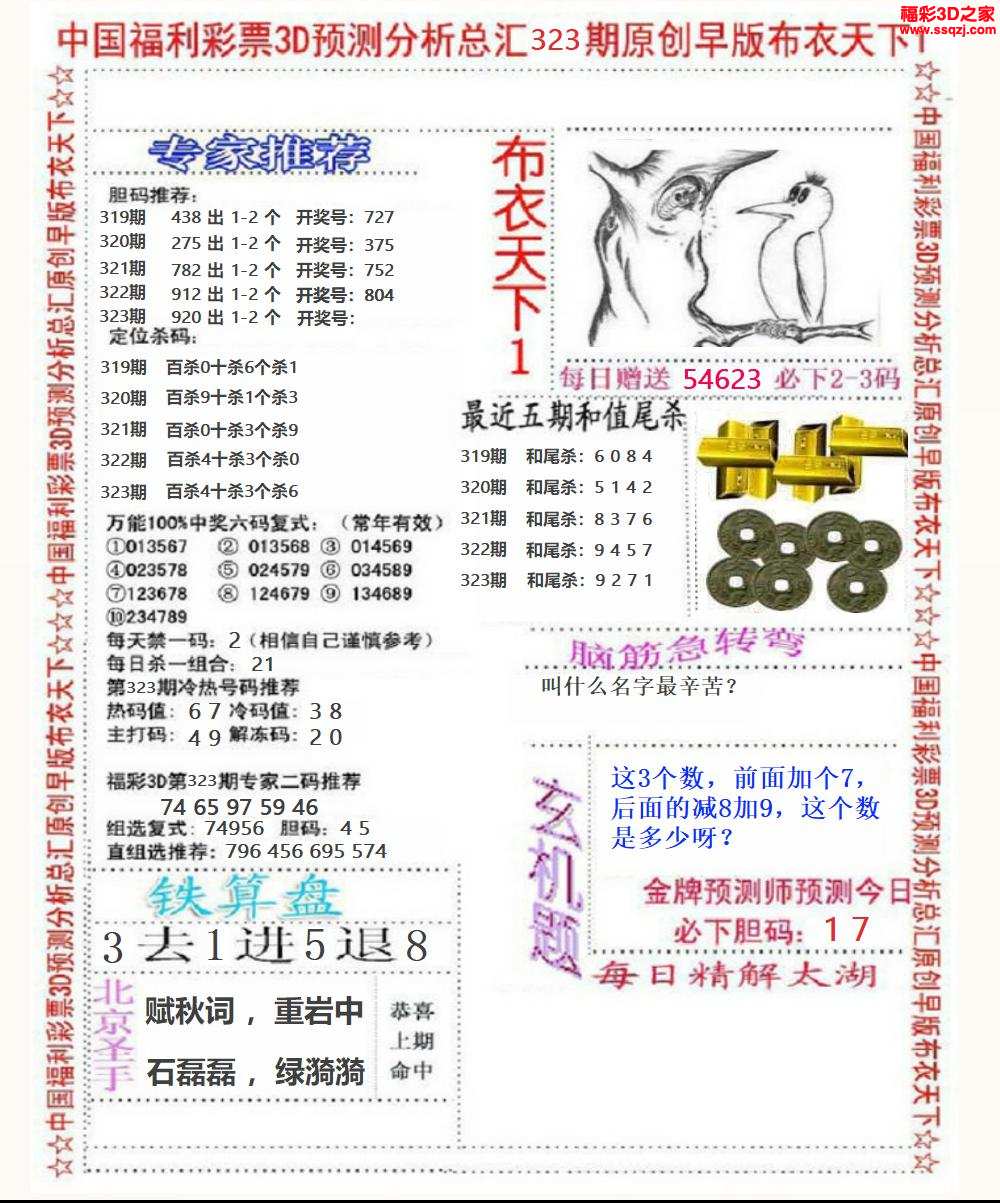 福彩3D之家
www.ssqzj.com
中国福利彩票3D预测分析总汇323期原创早版布衣天下1
☆☆中国福利彩票3D预测分析总汇原创早版布衣天下☆☆☆中国福利彩票3D预测分析总汇原创早版布衣天下☆☆
专家推荐
胆码推荐:
319期 438 出 1-2 个 开奖号: 727
320期 275 出 1-2 个 开奖号: 375
321期 782 出 1-2 个 开奖号: 752
322期 912 出 1-2 个 开奖号: 804
323期 920 出 1-2 个 开奖号:
定位杀码:
319期 百杀0十杀6个杀1
320期 百杀9十杀1个杀3
321期 百杀0十杀3个杀9
322期 百杀4十杀3个杀0
323期 百杀4十杀3个杀6
万能100%中奖六码复式: (常年有效)
①013567 ② 013568 ③ 014569
④023578 ⑤ 024579 ⑥ 034589
⑦123678 ⑧ 124679 ⑨ 134689
⑩234789
每天禁一码: 2 (相信自己谨慎参考)
每日杀一组合: 21
第323期冷热号码推荐
热码值: 6 7 冷码值: 3 8
主打码: 4 9 解冻码: 2 0
福彩3D第323期专家二码推荐
74 65 97 59 46
组选复式: 74956 胆码: 4 5
直组选推荐: 796 456 695 574
铁算盘
3 去 1 进 5 退 8
北京圣手
赋秋词 ,重岩中
石磊磊 ,绿漪漪
恭喜
上期
命中
布衣天下1
每日赠送 54623 必下2-3码
最近五期和值尾杀
319期 和尾杀: 6 0 8 4
320期 和尾杀: 5 1 4 2
321期 和尾杀: 8 3 7 6
322期 和尾杀: 9 4 5 7
323期 和尾杀: 9 2 7 1
脑筋急转弯
叫什么名字最辛苦?
玄机题
这3个数,前面加个7,
后面的减8加9,这个数
是多少呀?
金牌预测师预测今日
必下胆码: 1 7
每日精解太湖
☆☆中国福利彩票3D预测分析总汇原创早版布衣天下☆☆☆中国福利彩票3D预测分析总汇原创早版布衣天下☆☆